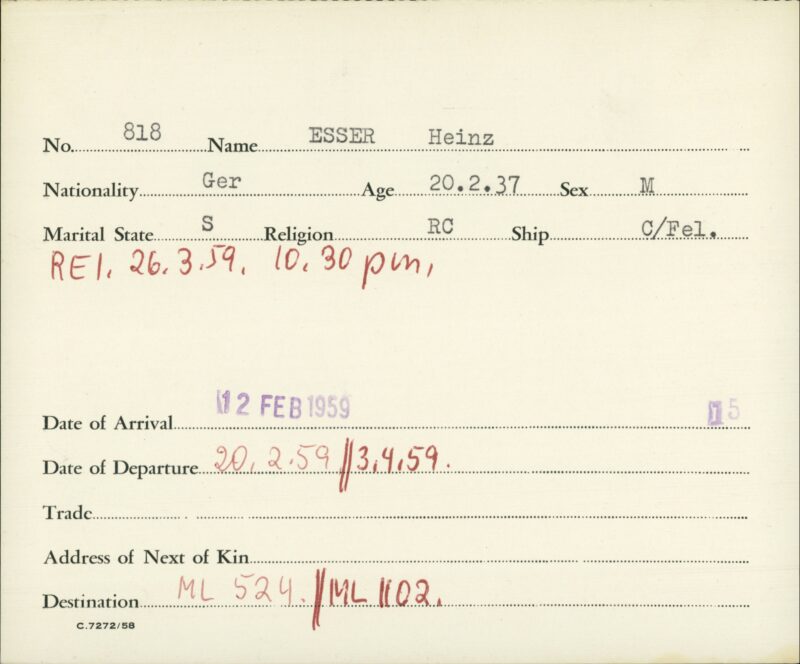 No. 818 Name ESSER Heinz
Nationality Ger Age 20.2.37 Sex M
Marital State S Religion RC Ship C/Fel.
REI. 26.3.59. 10.30 pm,
Date of Arrival 12 FEB 1959 15
Date of Departure 20.2.59 // 3.4.59.
Trade
Address of Next of Kin
Destination ML 524. // ML 1102.
C.7272/58